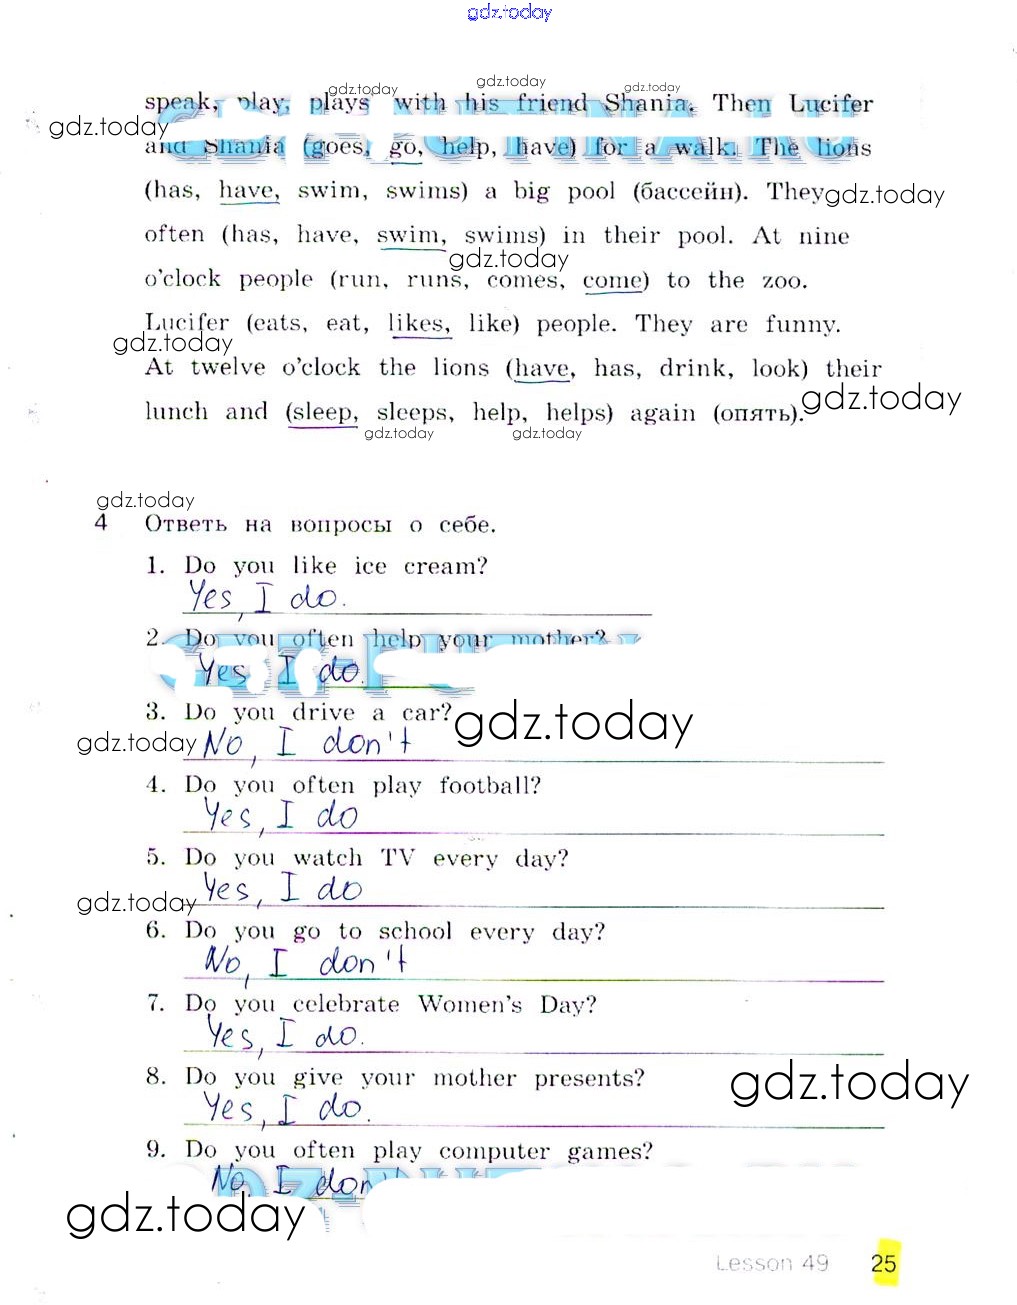 gdz.today
gdz.today gdz.today gdz.today
speak, play, plays with his friend Shania. Then Lucifer
gdz.today
and Shania (goes, go, help, have) for a walk. The lions
(has, have, swim, swims) a big pool (бассейн). They
gdz.today
often (has, have, swim, swims) in their pool. At nine
gdz.today
o'clock people (run, runs, comes, come) to the zoo.
Lucifer (eats, eat, likes, like) people. They are funny.
gdz.today
At twelve o'clock the lions (have, has, drink, look) their
gdz.today
lunch and (sleep, sleeps, help, helps) again (опять).
gdz.today gdz.today
gdz.today
4 Ответь на вопросы о себе.
1. Do you like ice cream?
Yes, I do.
2. Do you often help your mother?
Yes I do.
3. Do you drive a car?
gdz.today
gdz.today
No, I don't
4. Do you often play football?
Yes, I do
5. Do you watch TV every day?
Yes, I do
gdz.today
6. Do you go to school every day?
No, I don't
7. Do you celebrate Women's Day?
Yes, I do.
8. Do you give your mother presents?
gdz.today
Yes, I do.
9. Do you often play computer games?
No, I don't
gdz.today
Lesson 49 25